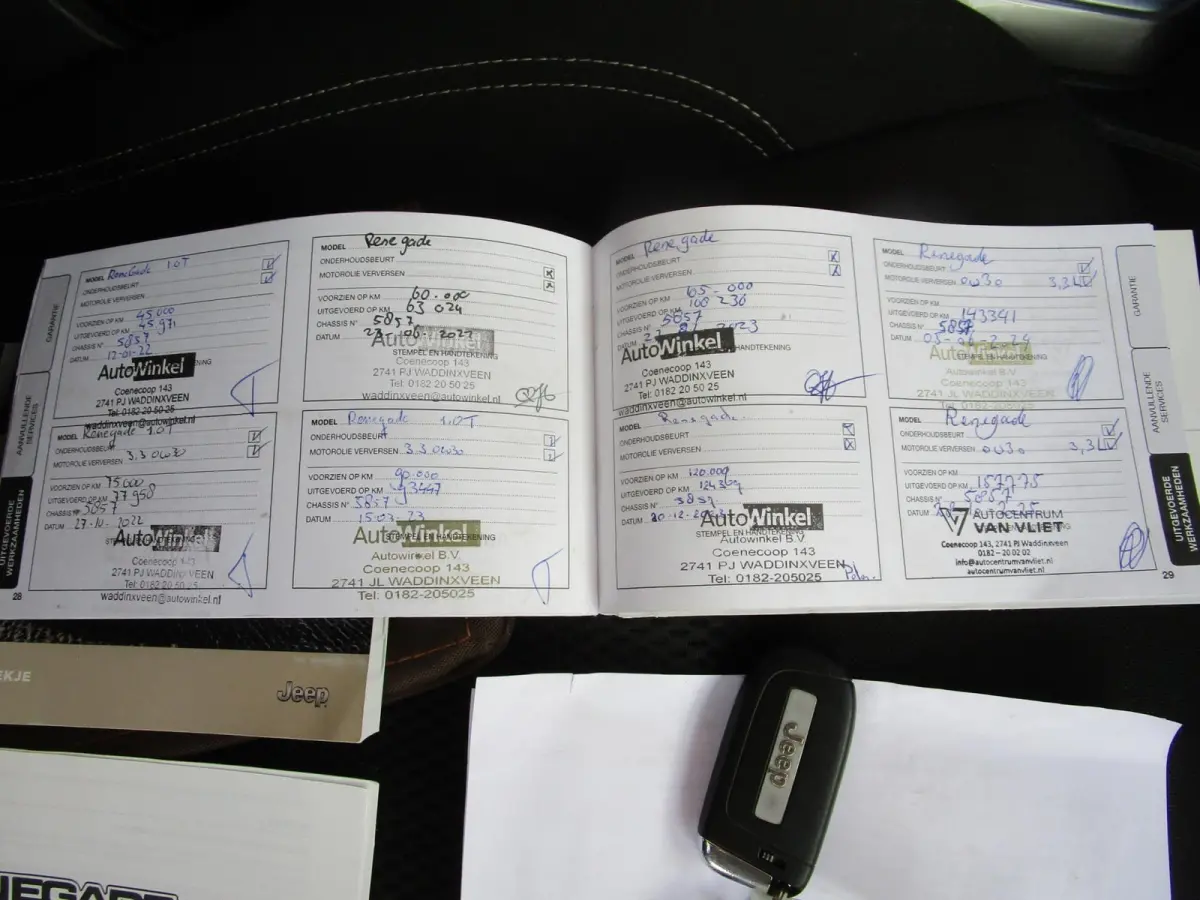 GARANTIE
AANVULLENDE
SERVICES
UITGEVOERDE
WERKZAAMHEDEN
28
MODEL Renegade 1.0T
ONDERHOUDSBEURT
MOTOROLIE VERVERSEN
VOORZIEN OP KM 45.000
UITGEVOERD OP KM 45.971
CHASSIS N° 5857
DATUM 12-01-22
AutoWinkel
Coenecoop 143
2741 PJ WADDINXVEEN
Tel: 0182 20 50 25
waddinxveen@autowinkel.nl
MODEL Renegade
ONDERHOUDSBEURT
MOTOROLIE VERVERSEN
VOORZIEN OP KM 60.000
UITGEVOERD OP KM 63 024
CHASSIS N° 5857
DATUM 23-06-2022
AutoWinkel
STEMPEL EN HANDTEKENING
Coenecoop 143
2741 PJ WADDINXVEEN
Tel: 0182 20 50 25
waddinxveen@autowinkel.nl
MODEL Renegade 1.0T
ONDERHOUDSBEURT
MOTOROLIE VERVERSEN 3.3 0W30
VOORZIEN OP KM 75000
UITGEVOERD OP KM 77958
CHASSIS N° 5857
DATUM 27-10-2022
AutoWinkel
Coenecoop 143
2741 PJ WADDINXVEEN
Tel: 0182 20 50 25
waddinxveen@autowinkel.nl
MODEL Renegade 1.0T
ONDERHOUDSBEURT
MOTOROLIE VERVERSEN 3.3 0W30
VOORZIEN OP KM 90.000
UITGEVOERD OP KM 93447
CHASSIS N° 5857
DATUM 15-03-23
AutoWinkel
STEMPEL EN HANDTEKENING
Autowinkel B.V.
Coenecoop 143
2741 JL WADDINXVEEN
Tel: 0182-205025
MODEL Renegade
ONDERHOUDSBEURT
MOTOROLIE VERVERSEN
VOORZIEN OP KM
UITGEVOERD OP KM 108 230
CHASSIS N° 5857
DATUM 2023
AutoWinkel
HANDTEKENING
Coenecoop 143
2741 PJ WADDINXVEEN
Tel: 0182 20 50 25
waddinxveen@autowinkel.nl
MODEL Renegade
ONDERHOUDSBEURT
MOTOROLIE VERVERSEN 0W30 3,3L
VOORZIEN OP KM
UITGEVOERD OP KM 143341
CHASSIS N° 5857
DATUM
STEMPEL EN HANDTEKENING
Autowinkel B.V.
Coenecoop 143
2741 JL WADDINXVEEN
MODEL Renegade
ONDERHOUDSBEURT
MOTOROLIE VERVERSEN
VOORZIEN OP KM 120.000
UITGEVOERD OP KM
CHASSIS N° 5857
DATUM 20-12-
AutoWinkel
STEMPEL EN HANDTEKENING
Autowinkel B.V.
Coenecoop 143
2741 PJ WADDINXVEEN
Tel: 0182-205025
MODEL Renegade
ONDERHOUDSBEURT
MOTOROLIE VERVERSEN 0W30 3,3L
VOORZIEN OP KM
UITGEVOERD OP KM 157775
CHASSIS N° 5857
DATUM
AUTOCENTRUM
VAN VLIET
Coenecoop 143, 2741 PJ Waddinxveen
0182 - 20 02 02
info@autocentrumvanvliet.nl
autocentrumvanvliet.nl
GARANTIE
AANVULLENDE
SERVICES
UITGEVOERDE
WERKZAAMHEDEN
29
EKJE
Jeep
Jeep